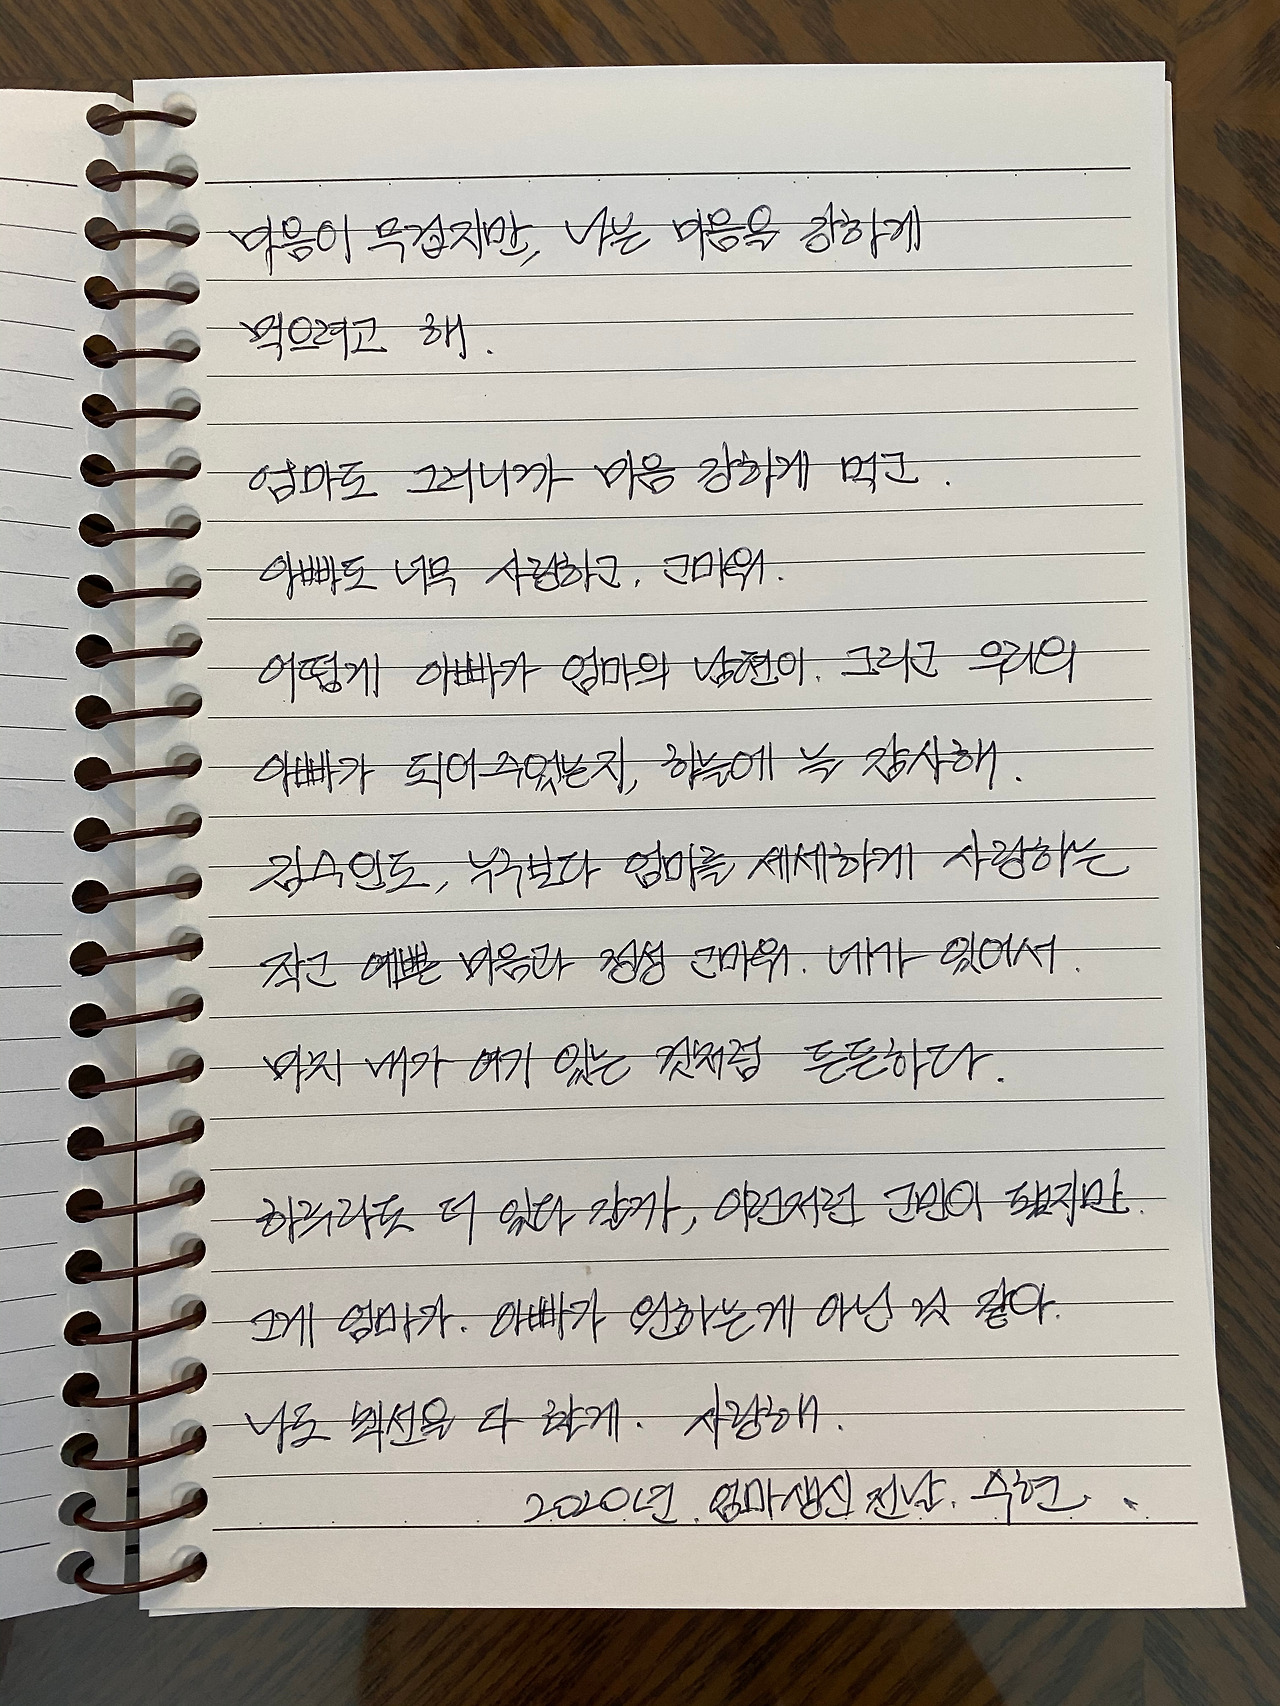 마음이 무겁지만, 나는 마음을 강하게
먹으려고 해.
엄마도 그러니까 마음 강하게 먹고.
아빠도 너무 사랑하고, 고마워.
어떻게 아빠가 엄마의 남편이, 그리고 우리의
아빠가 되어주었는지, 하늘에 늘 감사해.
김수인도, 누구보다 엄마를 세세하게 사랑하는
작고 예쁜 마음과 정성 고마워. 네가 있어서.
마치 내가 여기 있는 것처럼 든든하다.
하루라도 더 있다 갈까, 이런저런 고민이 됐지만.
그게 엄마가. 아빠가 원하는게 아닌 것 같아.
나도 최선을 다 할게. 사랑해.
2020년. 엄마생신 전날. 수현.